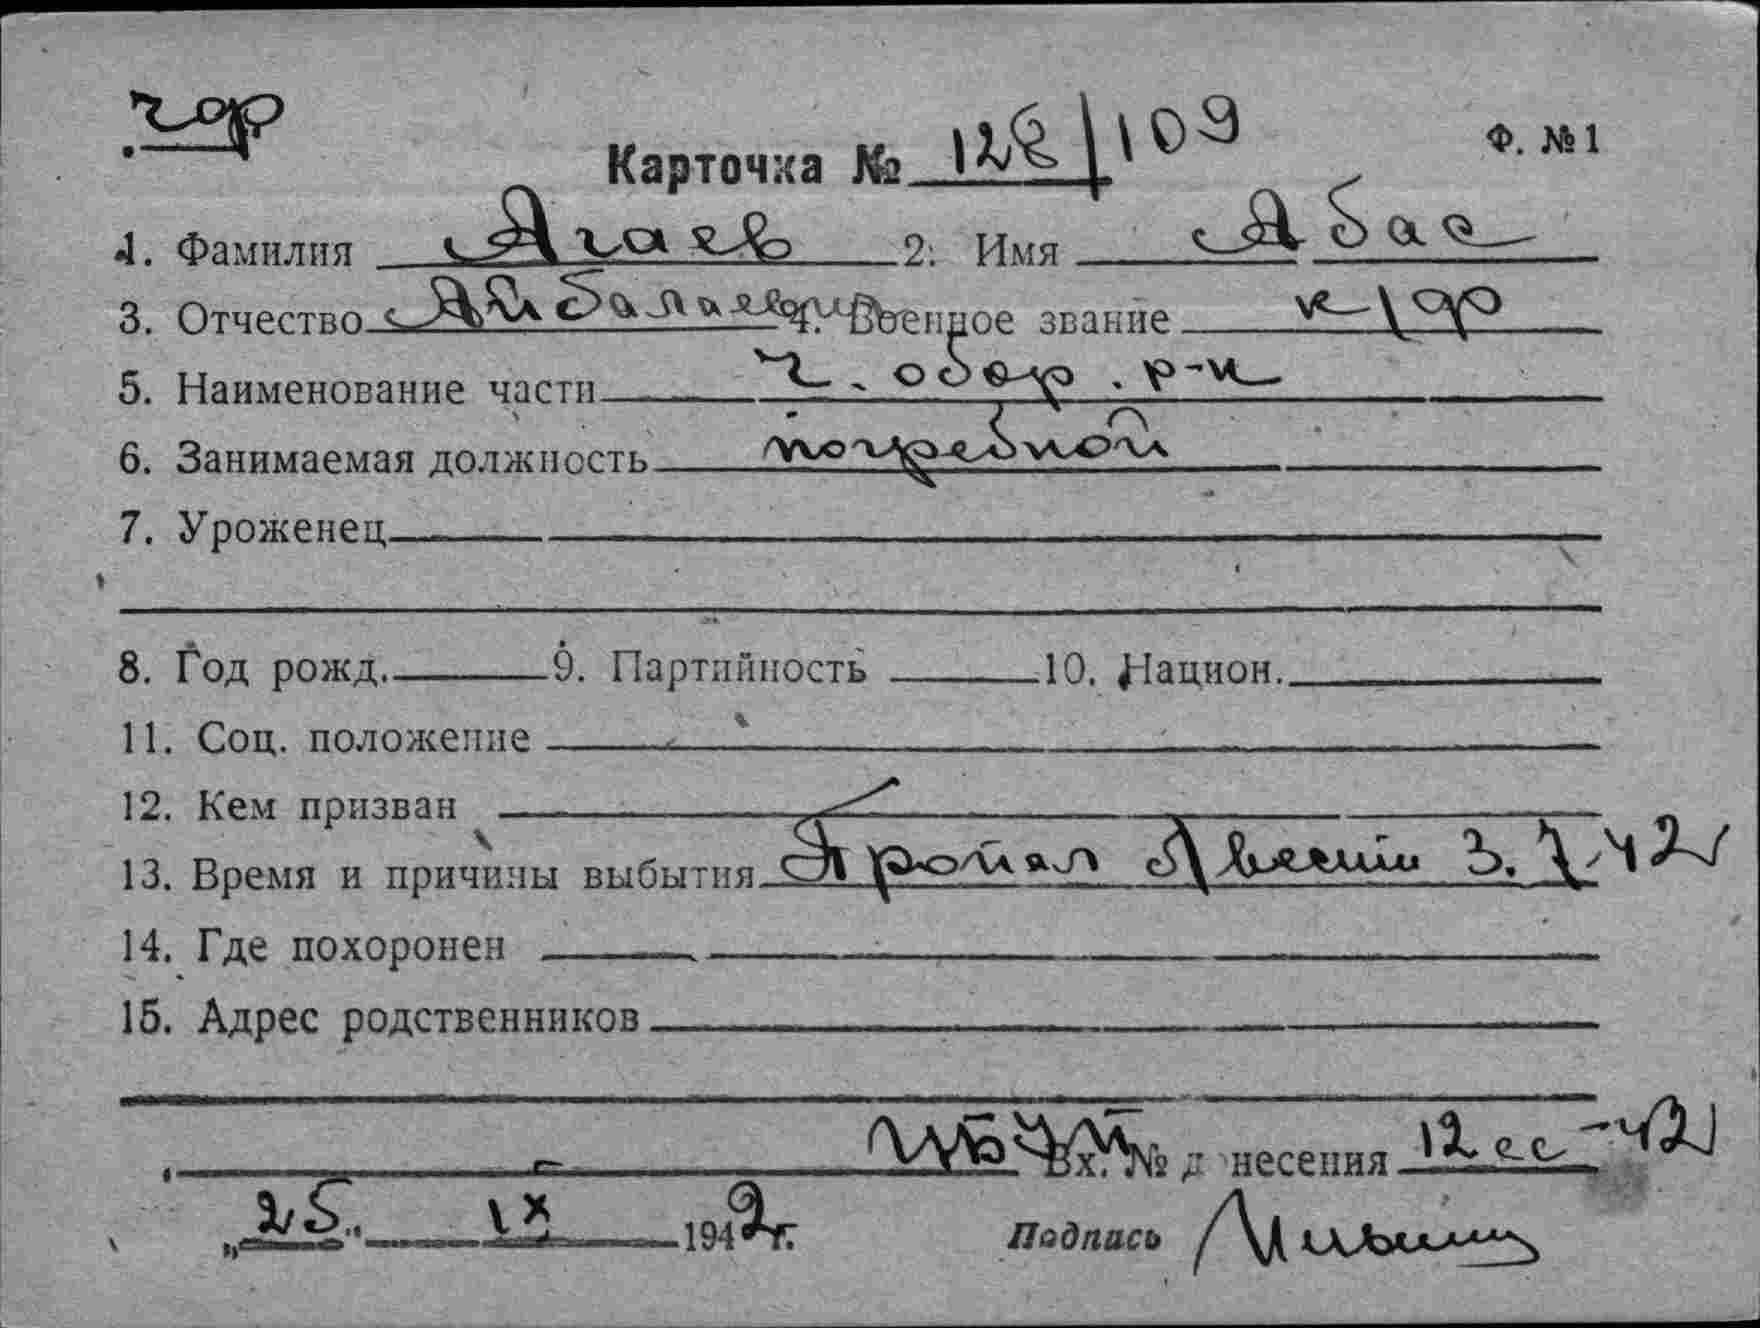 чф
Карточка № 128/109 Ф. № 1
1. Фамилия Агаев 2. Имя Абас
3. Отчество Айбалаевич 4. Военное звание к/ф
5. Наименование части Ч. обор. р-н
6. Занимаемая должность погребной
7. Уроженец
8. Год рожд. 9. Партийность 10. Национ.
11. Соц. положение
12. Кем призван
13. Время и причины выбытия Пропал б/вести 3.7.42
14. Где похоронен
15. Адрес родственников
Вх. № донесения 12сс-42
„25" IX 1942 г. Подпись